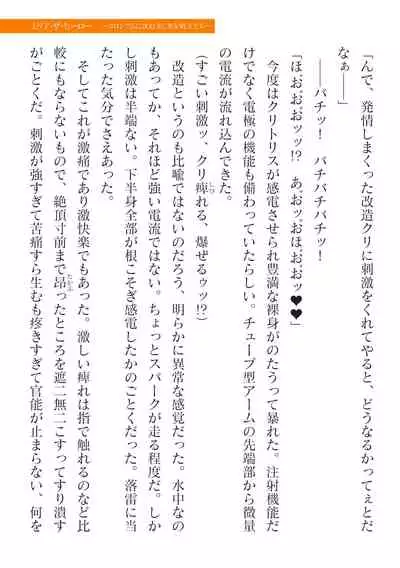 「んで、発情しまくった改造クリに刺激をくれてやると、どうなるかってぇとだ
なぁ――」
――バチッ！　バチバチバチッ！
「ほ､おおおッッ!?　あ､おッ､おほ､おおッ♥♥」
今度はクリトリスが感電させられ豊満な裸身がのたうって暴れた。注射機能だ
けでなく電極の機能も備わっていたらしい。チューブ型アームの先端部から微量
の電流が流れ込んできた。
（すごい刺激ッ、クリ痺れる、爆ぜるゥッ!?）
改造というのも比喩ではないのだろう、明らかに異常な感覚だった。水中なの
もあってか、それほど強い電流ではない。ちょっとスパークが走る程度だ。しか
し刺激は半端ない。下半身全部が根こそぎ感電したかのごとくだった。落雷に当
たった気分でさえあった。
そしてこれが激痛であり激快楽でもあった。激しい痺れは指で触れるのなど比
較にもならないもので、絶頂寸前まで昂ったところを遮二無二こすってすり潰す
がごとくだ。刺激が強すぎて苦痛すら生むも疼きすぎて官能が止まらない、何を